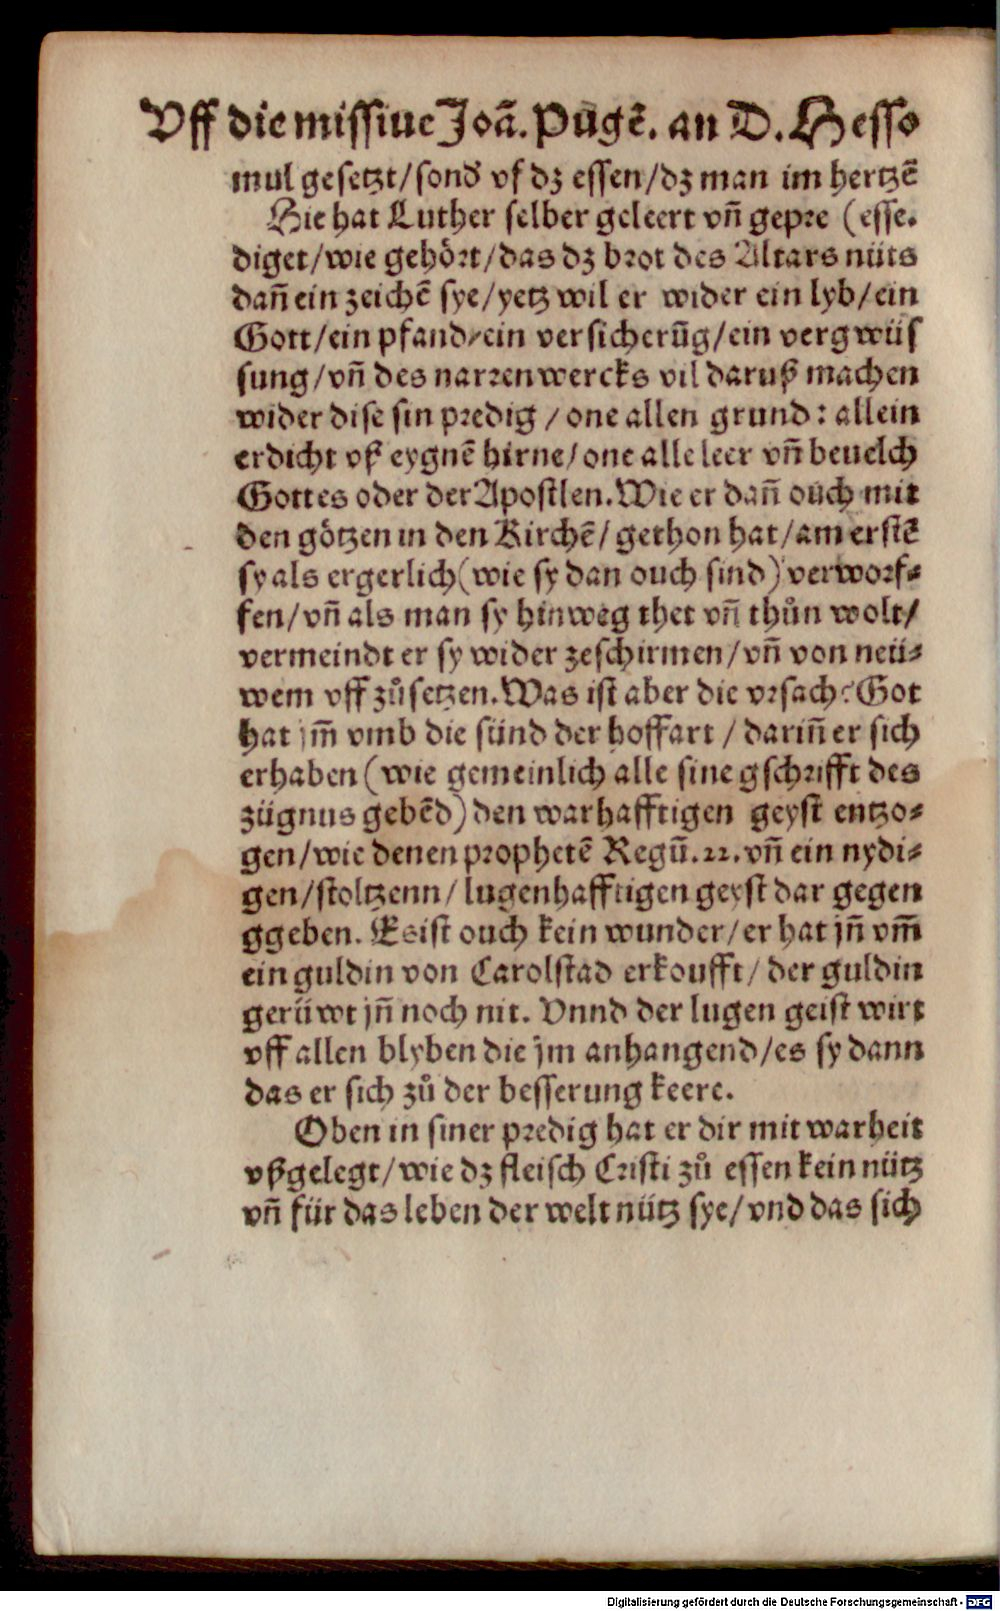 Vff die missiue Joã. Pugẽ. an D. Hesso
mul gesetzt/sond' vf dz essen/dz man im hertzẽ
Hie hat Luther selber geleert vñ gepre (esse.
diget/wie gehört/das dz brot des Altars nüts
dañ ein zeichẽ sye/yetz wil er wider ein lyb/ein
Gott/ein pfand/ein versicherũg/ein vergwüs
sung/vñ des narrenwercks vil daruß machen
wider dise sin predig/one allen grund: allein
erdicht vß eygnẽ hirne/one alle leer vñ beuelch
Gottes oder der Apostlen. Wie er dañ ouch mit
den götzen in den Kirchẽ/gethon hat/am erstẽ
sy als ergerlich (wie sy dan ouch sind) verworf-
fen/vñ als man sy hinweg thet vñ thůn wolt/
vermeindt er sy wider zeschirmen/vñ von neü-
wem vff zůsetzen. Was ist aber die vrsach? Got
hat jm̃ vmb die sünd der hoffart/dariñ er sich
erhaben (wie gemeinlich alle sine gschrifft des
zügnus gebẽd) den warhafftigen geyst entzo-
gen/wie denen prophetẽ Regũ. 22. vñ ein nydi-
gen/stoltzenn/lugenhafftigen geyst dar gegen
ggeben. Es ist ouch kein wunder/er hat jñ vm̃
ein guldin von Carolstad erkoufft/der guldin
gerüwt jñ noch nit. Vnnd der lugen geist wirt
vff allen blyben die jm anhangend/es sy dann
das er sich zů der besserung keere.
Oben in siner predig hat er dir mit warheit
vßgelegt/wie dz fleisch Cristi zů essen kein nütz
vñ für das leben der welt nütz sye/vnd das sich
Digitalisierung gefördert durch die Deutsche Forschungsgemeinschaft - DFG